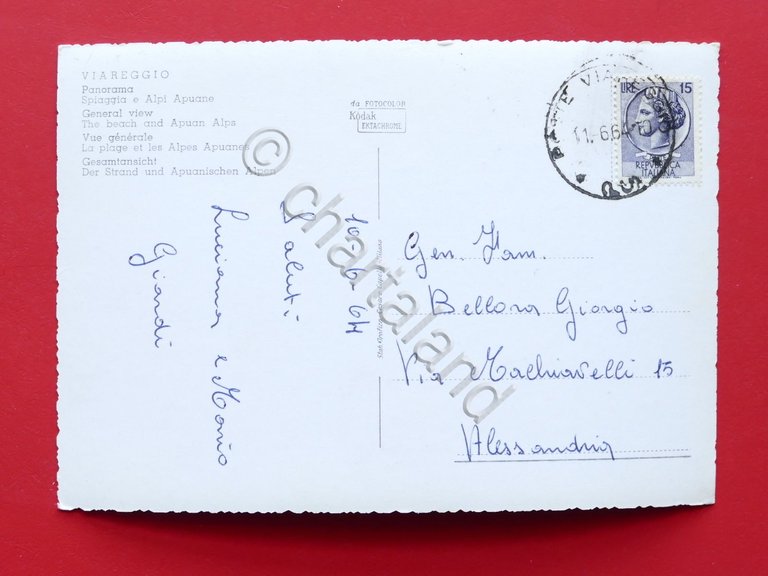 VIAREGGIO
Panorama
Spiaggia e Alpi Apuane
General view
The beach and Apuan Alps
Vue générale
La plage et les Alpes Apuanes
Gesamtansicht
Der Strand und Apuanischen Alpen
da FOTOCOLOR
Kodak
EKTACHROME
LIRE 15
REPVBBLICA
ITALIANA
11.6.64
10-6-64
Saluti
Luciana e Mario
Giandi
Gen. Fam.
Bellora Giorgio
Via Machiavelli 15
Alessandria
© chartaland